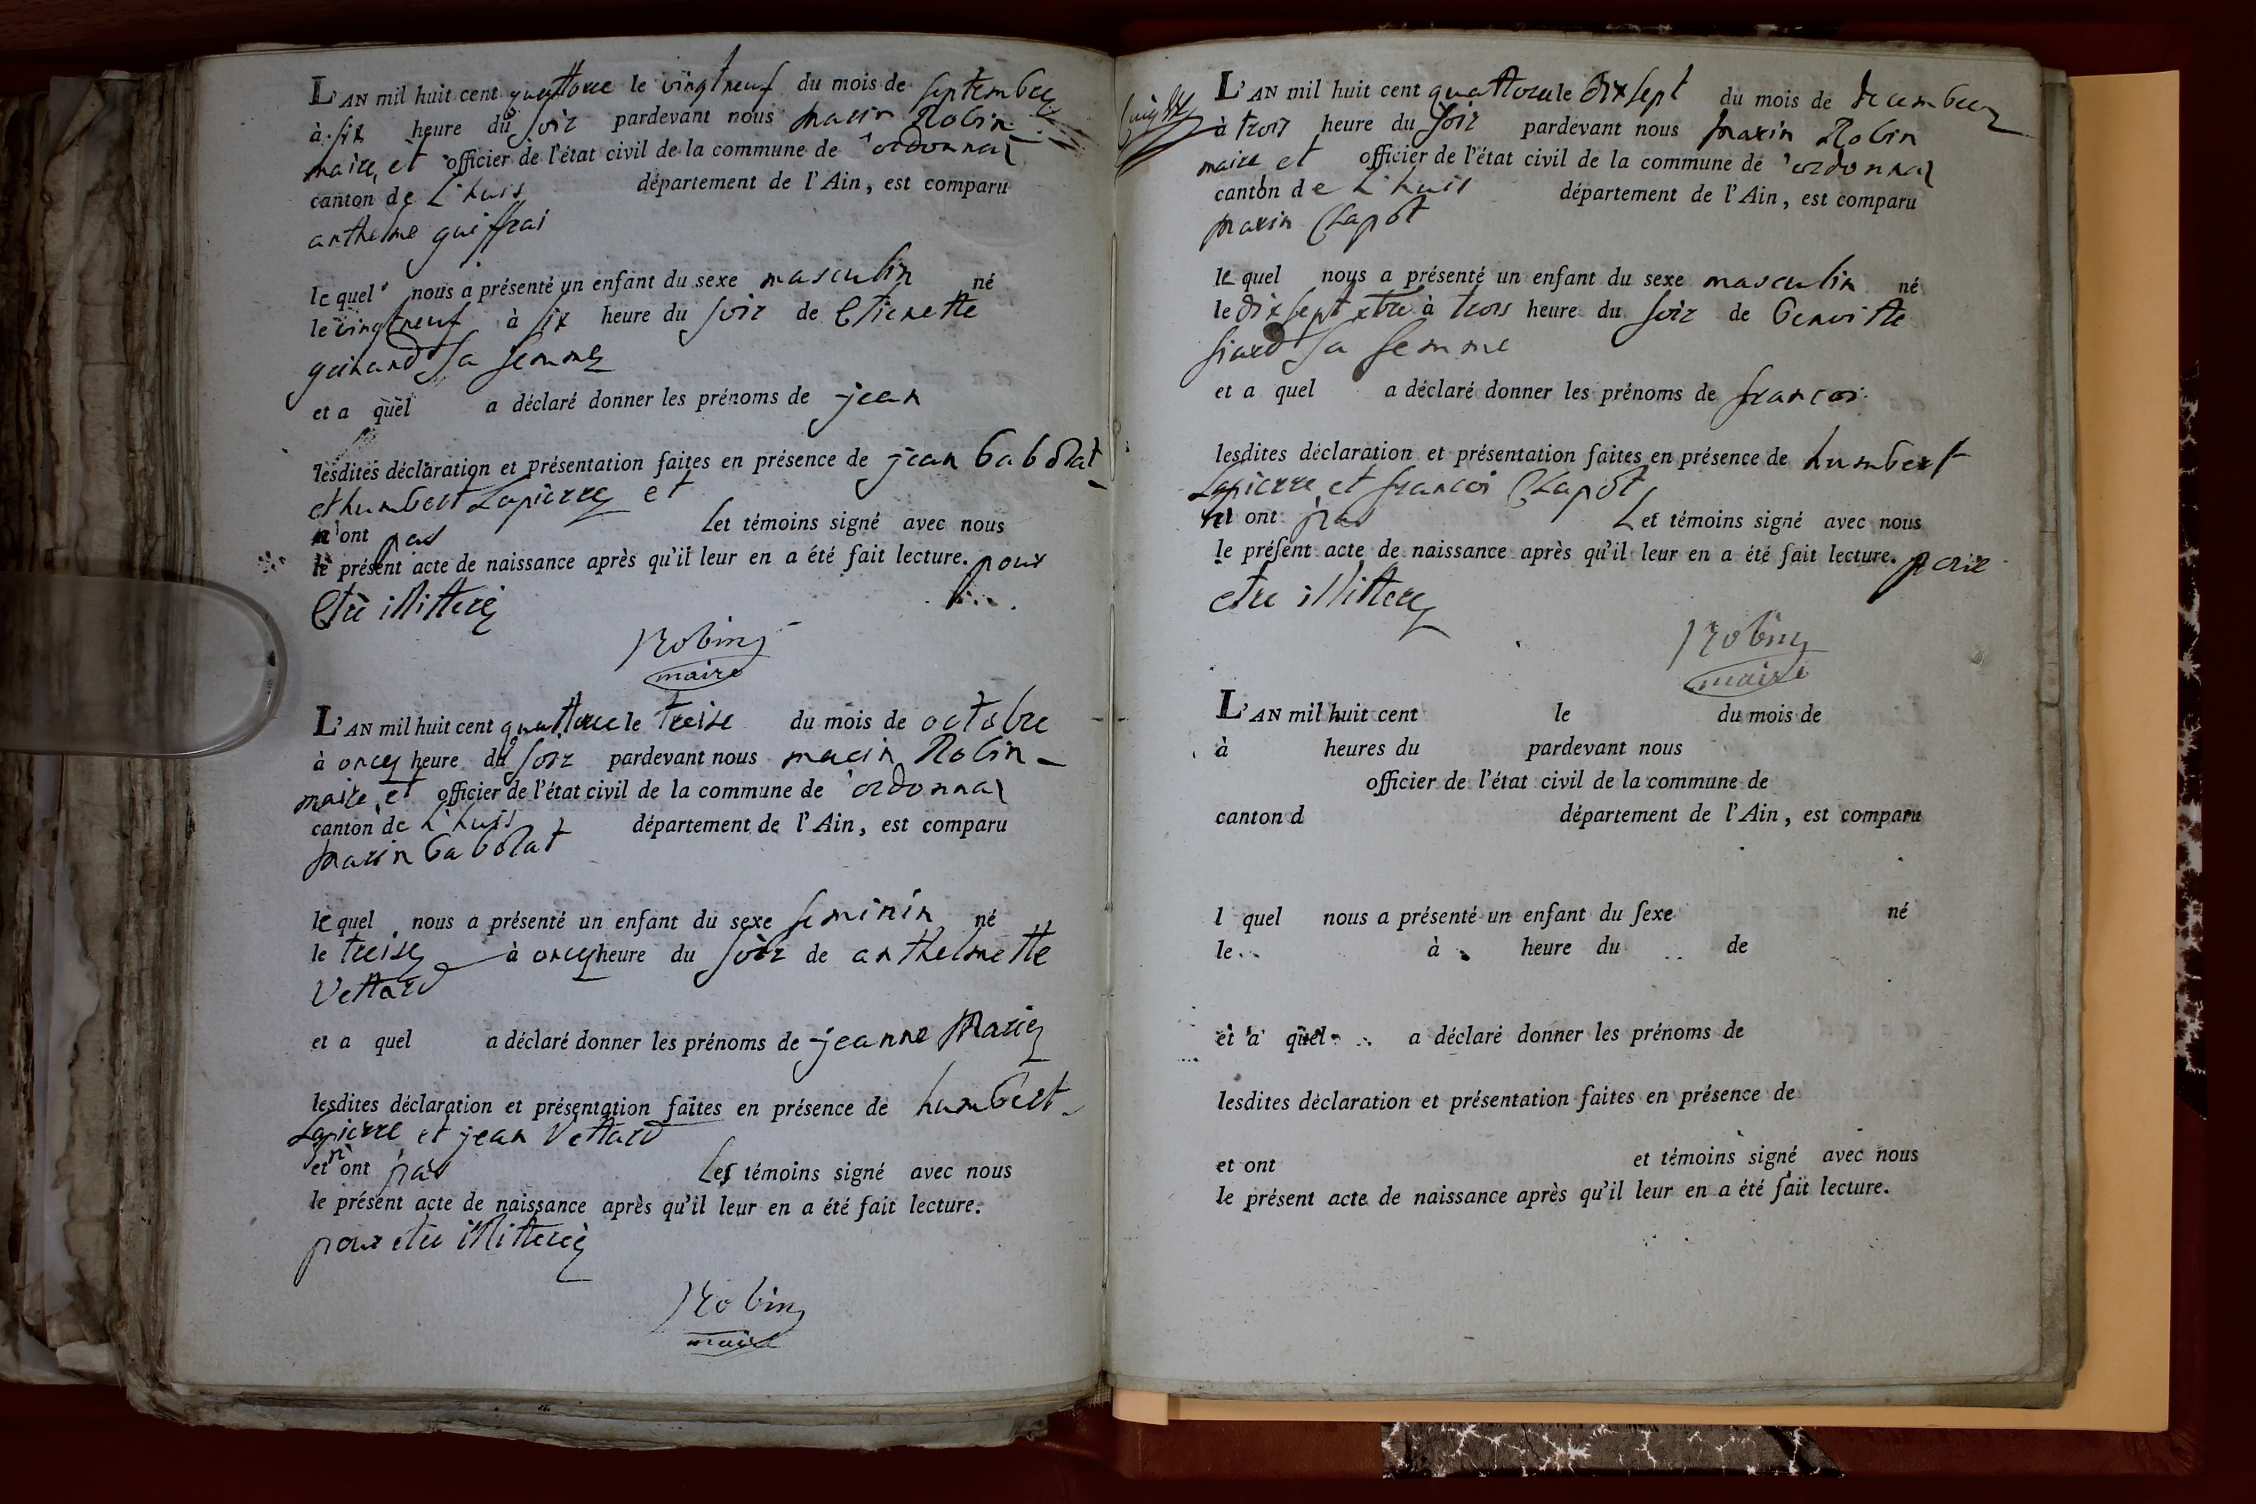 L'AN mil huit cent quattorce le vingtneuf du mois de septembre
à six heure du soir pardevant nous marin Robin
maire, et officier de l'état civil de la commune de ordonnas
canton de L'huis département de l'Ain, est comparu
anthelme guiffrai
le quel nous a présenté un enfant du sexe masculin né
le vingtneuf à six heure du soir de Etienette
guinand sa femme
et a quel a déclaré donner les prénoms de jean
lesdites déclaration et présentation faites en présence de jean babolat
et humbert Lapierre et
n'ont pas Let témoins signé avec nous
le présent acte de naissance après qu'il leur en a été fait lecture. pour
Etre illitteré
Robin
maire
L'AN mil huit cent quattorce le treise du mois de octobre
à once heure du soir pardevant nous marin Robin
maire, et officier de l'état civil de la commune de ordonnas
canton de L'huis département de l'Ain, est comparu
marin babolat
le quel nous a présenté un enfant du sexe feminin né
le treise à once heure du soir de anthelmette
Vettard
et a quel a déclaré donner les prénoms de jeanne Marie
lesdites déclaration et présentation faites en présence de humbert
Lapierre et jean Vettard
et n'ont pas Les témoins signé avec nous
le présent acte de naissance après qu'il leur en a été fait lecture.
pour etre illitteré
Robin
maire
L'AN mil huit cent quattorce le dix sept du mois de decembre
à trois heure du soir pardevant nous marin Robin
maire et officier de l'état civil de la commune de ordonnas
canton de L'huis département de l'Ain, est comparu
marin Chapot
le quel nous a présenté un enfant du sexe masculin né
le dix sept à trois heure du soir de benoitte
siard sa femme
et a quel a déclaré donner les prénoms de francoi
lesdites déclaration et présentation faites en présence de humbert
Lapierre et francoi Chapot
ont pas Let témoins signé avec nous
le présent acte de naissance après qu'il leur en a été fait lecture. pour
etre illitteré
Robin
maire
L'AN mil huit cent le du mois de
à heures du pardevant nous
officier de l'état civil de la commune de
canton d département de l'Ain, est comparu
l quel nous a présenté un enfant du sexe né
le à heure du de
et a quel a déclaré donner les prénoms de
lesdites déclaration et présentation faites en présence de
et ont et témoins signé avec nous
le présent acte de naissance après qu'il leur en a été fait lecture.